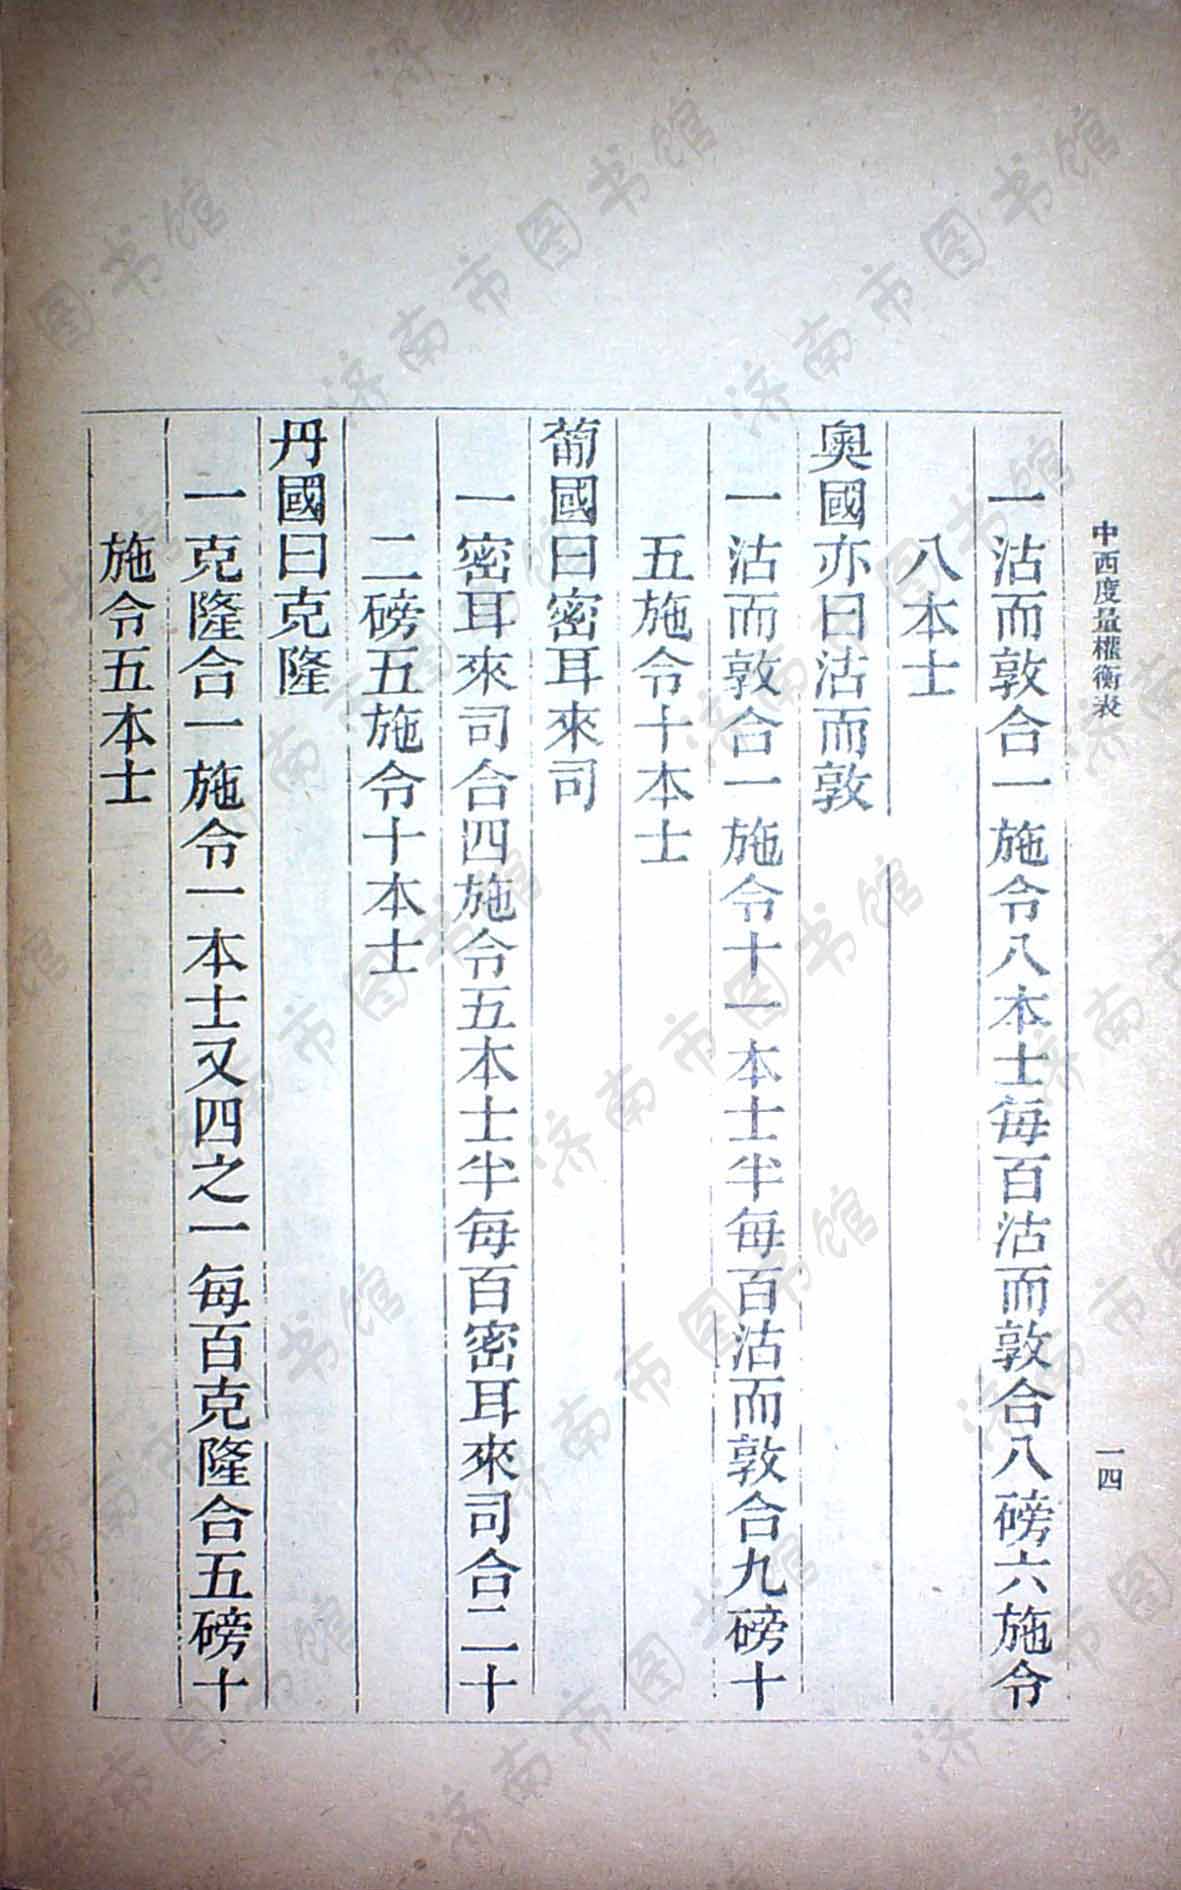 中西度量權衡表
一四
一沽而敦合一施令八本士每百沽而敦合八磅六施令
八本士
奧國亦曰沽而敦
一沽而敦合一施令十一本士半每百沽而敦合九磅十
五施令十本士
葡國曰密耳來司
一密耳來司合四施令五本士半每百密耳來司合二十
二磅五施令十本士
丹國曰克隆
一克隆合一施令一本士又四之一每百克隆合五磅十
施令五本士
济南市图书馆